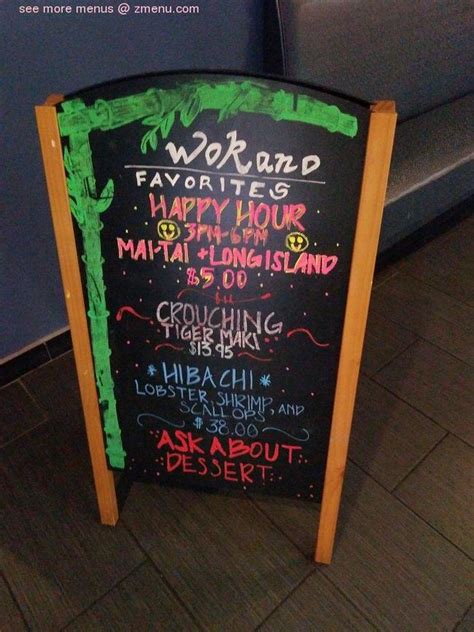 see more menus @ zmenu.com
Wokano
FAVORITES
HAPPY HOUR
3PM-6PM
MAI-TAI + LONG ISLAND
$5.00
CROUCHING
TIGER MAKI
$13.95
* HIBACHI *
LOBSTER, SHRIMP, AND
SCALLOPS
$38.00
ASK ABOUT
DESSERT